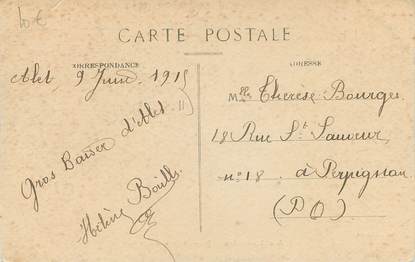 10€
CARTE POSTALE
CORRESPONDANCE
ADRESSE
Alet 9 Juin 1915
Gros Baiser d'Alet
Hélène
Mlle Therèse Bourges
18 Rue St Sauveur
n° 18 à Perpignan
(P O)